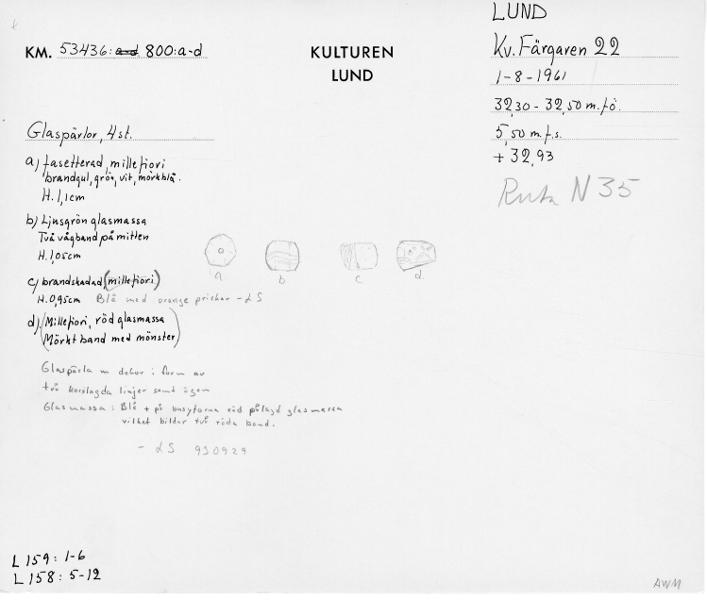 LUND
KM. 53436: a-d 800:a-d
KULTUREN
LUND
Kv. Färgaren 22
1-8-1961
32,30 - 32,50 m.f.ö.
5,50 m.f.s.
+ 32,93
Ruta N 35
Glaspärlor, 4 st.
a) fasetterad, millefiori
brandgul, grön, vit, mörkblå.
H. 1,1cm
b) Ljusgrön glasmassa
Två vågband på mitten
H. 1,05cm
c) brandskadad, (millefiori)
H. 0,95cm Blå med orange prickar - LS
d) (Millefiori, röd glasmassa
Mörkt band med mönster)
a b c d.
Glaspärla m dekor i form av
två korslagda linjer samt ögon
Glasmassa: Blå + på basytorna röd pålagd glasmassa
vilket bildar två röda band.
- LS 930929
L 159: 1-6
L 158: 5-12
AWM